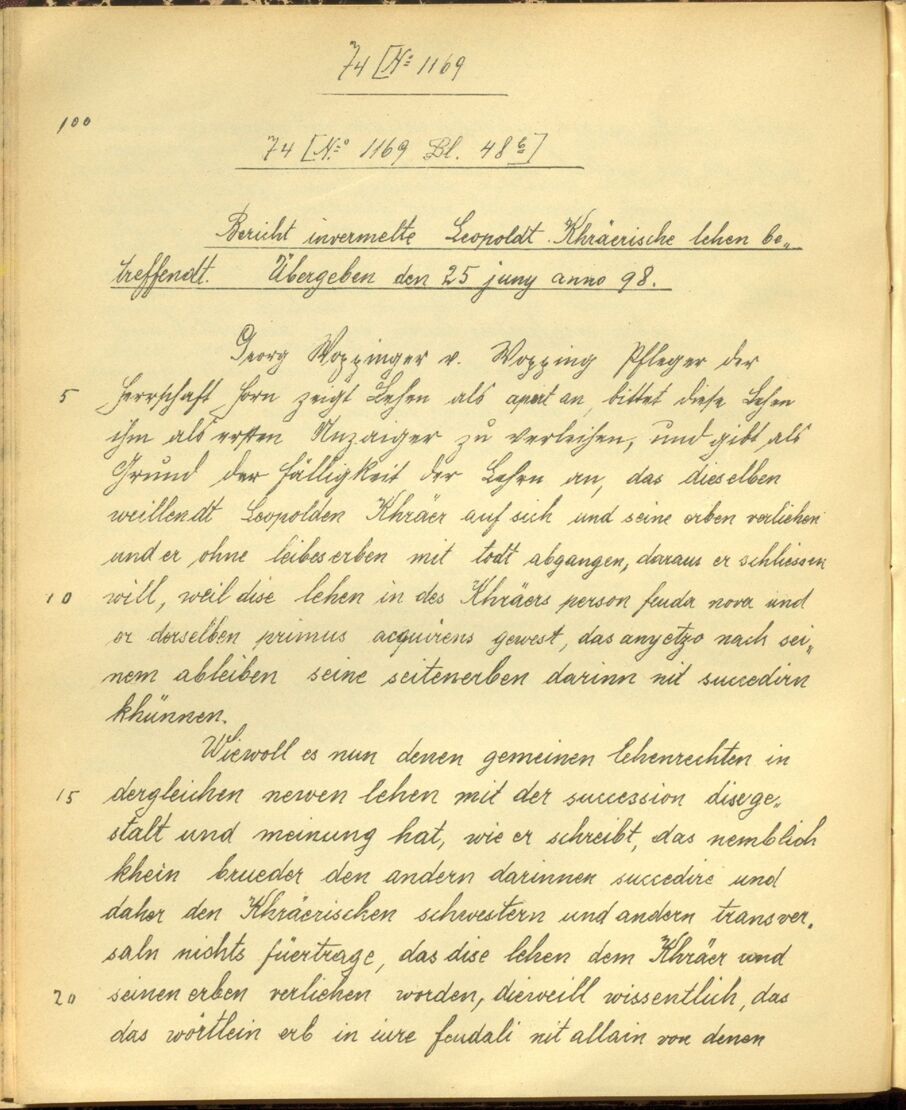 74 [Nº 1169
100
74 [Nº 1169 Bl. 48 b]
Bericht invermelte Leopoldt Khräerische lehen be„
treffendt. Übergeben den 25 juny anno 98.
Georg Woppinger v. Wopping Pfleger der
5 Herrschaft Horn zeigt Lehen als apert an, bittet diese Lehen
ihm als ersten Anzaiger zu verleihen, und gibt als
Grund der Fälligkeit der Lehen an, das dieselben
weillendt Leopolden Khräer auf sich und seine erben verliehen
und er ohne leibeserben mit todt abgangen, daraus er schliessen
10 will, weil dise lehen in des Khräers person feuda nova und
er derselben primus acquirens gewest, das anyetzo nach sei„
nem ableiben seine seitenerben darinn nit succedirn
khünnen.
Wiewoll es nun denen gemeinen lehenrechten in
15 dergleichen newen lehen mit der succession diserge„
stalt und meinung hat, wie er schreibt, das nemblich
khein brueder den andern darinnen succedire und
daher den Khräerischen schwestern und andern transver„
saln nichts füertrage, das dise lehen dem Khräer und
20 seinen erben verliehen worden, dieweill wissentlich, das
das wörtlein erb in iure feudali nit allain von denen